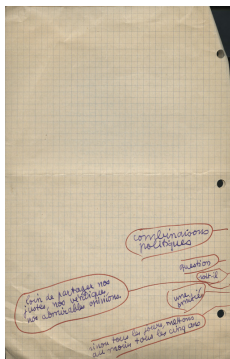 combinaisons
politiques
question
loin de partager nos
justes, nos
nos admirables opinions
sinon tous les jours, mettons
au moins tous les cinq ans